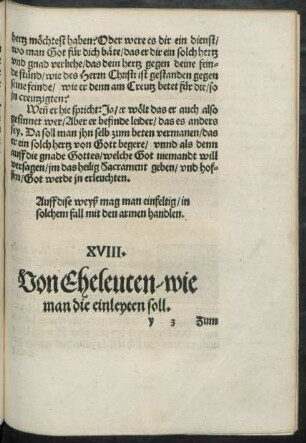 hertz möchtest haben? Oder were es dir ein dienst/
wo man Got für dich bäte/das er dir ein solch hertz
vnd gnad verliehe/das dein hertz gegen deine fein-
de stünd/wie des Herrn Christi ist gestanden gegen
seine feinde/ wie er denn am Creutz betet für die/so
jn creutzigten?
Weñ er hie spricht: Ja/er wölt das er auch also
gesinnet wer/Aber er befinde leider/das es anders
sey. Da soll man jhn selb zum beten vermanen/das
er ein solch hertz von Gott begere/ vnnd als denn
auff die gnade Gottes/welche Got niemandt will
versagen/jm das heilig Sacrament geben/ vnd hof-
fen/Got werde jn erleuchten.
Auff dise weyß mag man einfeltig/in
solchem fall mit den armen handlen.
XVIII.
Von Eheleuten-wie
man die einleyten soll.
y 3 Zum